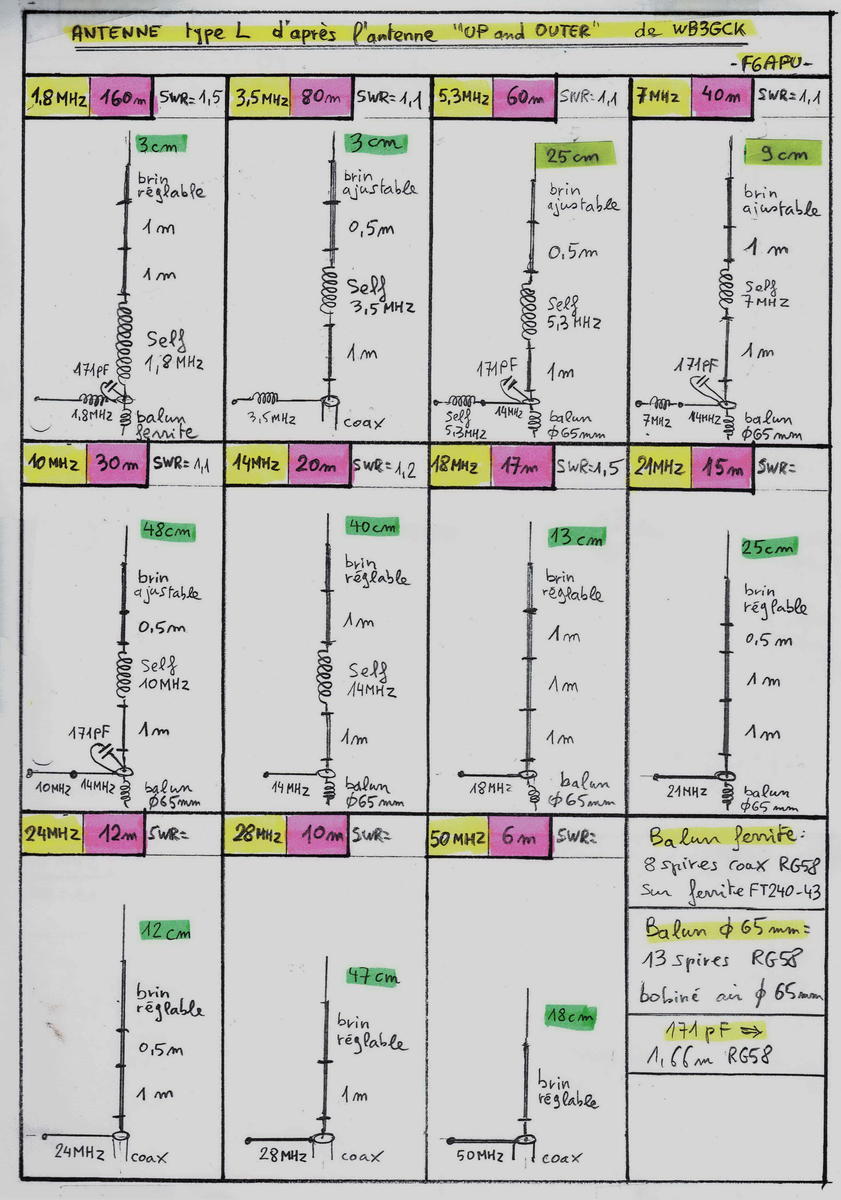 ANTENNE type L d'après l'antenne "UP and OUTER" de WB3GCK
-F6APU-
1,8MHz 160m SWR=1,5
3cm
brin
réglable
1m
1m
Self
1,8MHz
171pF
1,8MHz
balun
ferrite
3,5MHz 80m SWR=1,1
3cm
brin
ajustable
0,5m
Self
3,5MHz
1m
3,5MHz
coax
5,3MHz 60m SWR=1,1
25cm
brin
ajustable
0,5m
Self
5,3MHz
171pF
1m
Self
5,3MHz
14MHz
balun
ϕ65mm
7MHz 40m SWR=1,1
9cm
brin
ajustable
1m
Self
7MHz
171pF
1m
7MHz
14MHz
balun
ϕ65mm
10MHz 30m SWR=1,1
48cm
brin
ajustable
0,5m
Self
10MHz
171pF
1m
10MHz
14MHz
balun
ϕ65mm
14MHz 20m SWR=1,2
40cm
brin
réglable
1m
Self
14MHz
1m
14MHz
balun
ϕ65mm
18MHz 17m SWR=1,5
13cm
brin
réglable
1m
1m
1m
18MHz
balun
ϕ65mm
21MHz 15m SWR=
25cm
brin
réglable
0,5m
1m
1m
21MHz
balun
ϕ65mm
24MHz 12m SWR=
12cm
brin
réglable
0,5m
1m
24MHz
coax
28MHz 10m SWR=
47cm
brin
réglable
1m
28MHz
coax
50MHz 6m SWR=
18cm
brin
réglable
50MHz
coax
Balun ferrite:
8 spires coax RG58
Sur ferrite FT240-43
Balun ϕ65mm=
13 spires RG58
bobiné air ϕ65mm
171pF ⇒
1,66m RG58